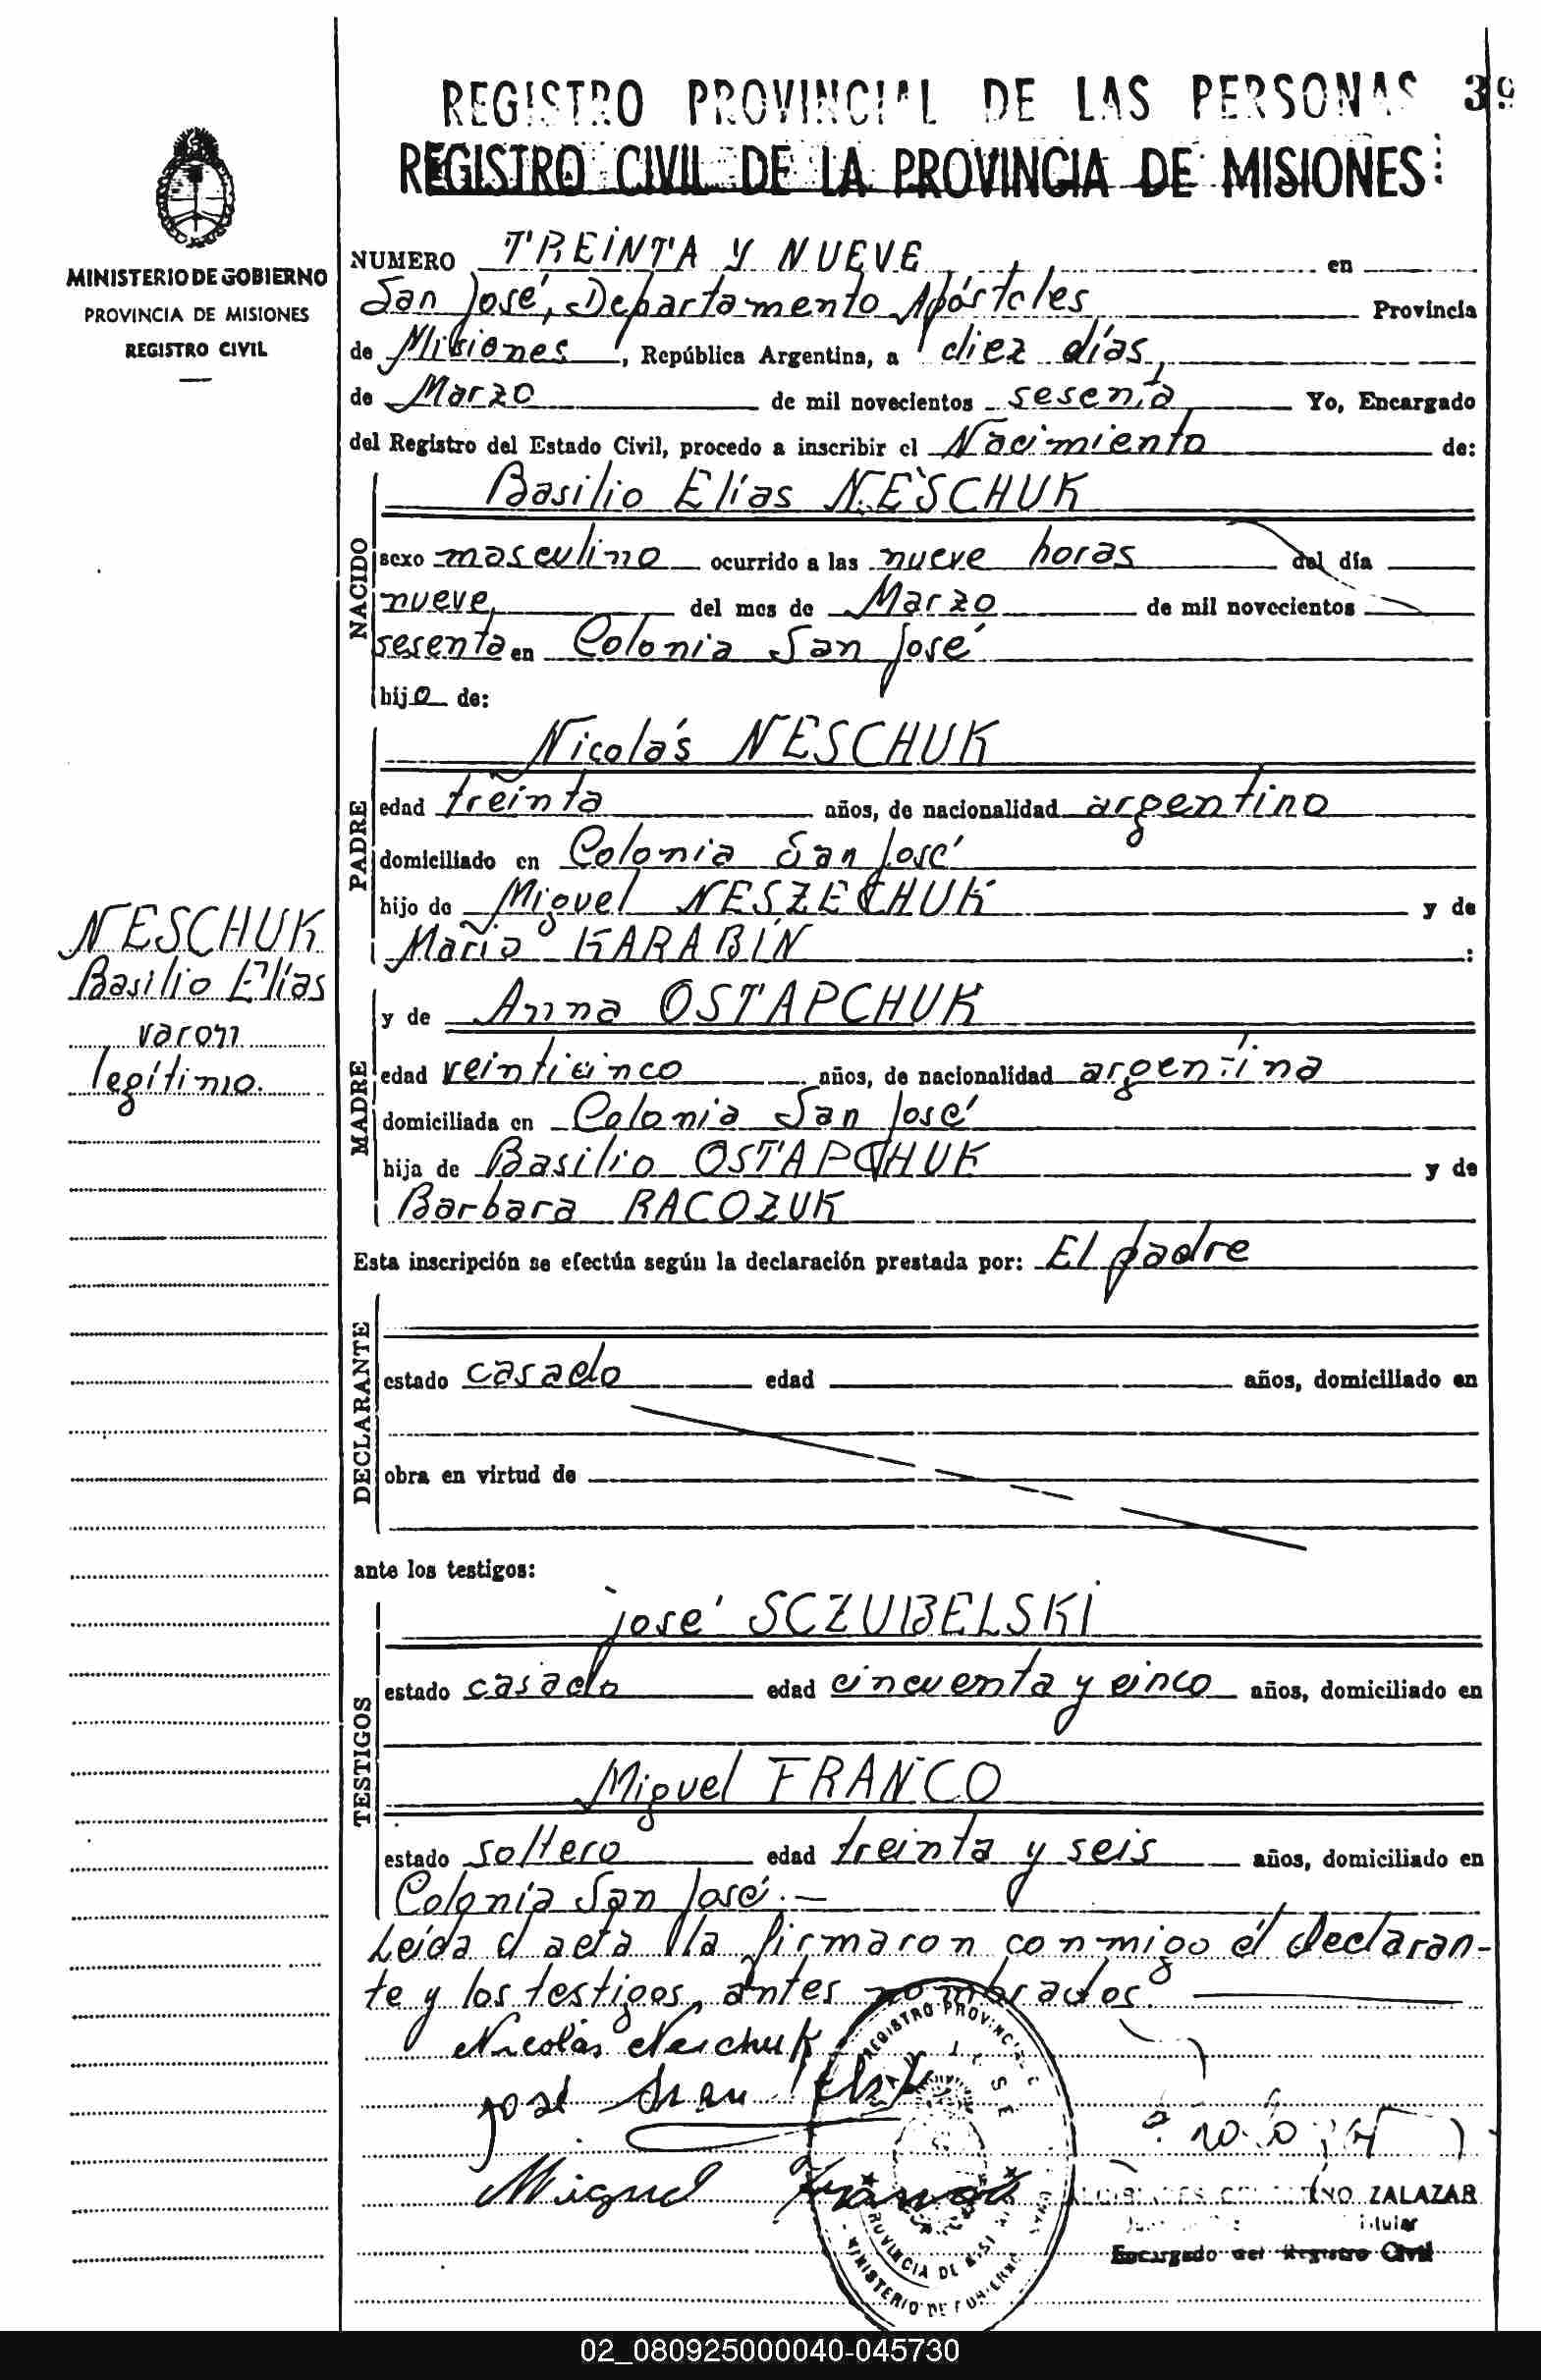 REGISTRO PROVINCIAL DE LAS PERSONAS 39
REGISTRO CIVIL DE LA PROVINCIA DE MISIONES
MINISTERIO DE GOBIERNO
PROVINCIA DE MISIONES
REGISTRO CIVIL
NUMERO TREINTA Y NUEVE en
San José, Departamento Apóstoles Provincia
de Misiones, República Argentina, a diez días,
de Marzo de mil novecientos sesenta Yo, Encargado
del Registro del Estado Civil, procedo a inscribir el Nacimiento de:
NACIDO
Basilio Elías NESCHUK
sexo masculino ocurrido a las nueve horas del día
nueve, del mes de Marzo de mil novecientos
sesenta en Colonia San José
hijo de:
PADRE
Nicolás NESCHUK
edad treinta años, de nacionalidad argentino
domiciliado en Colonia San José
hijo de Miguel NESZECHUK y de
María KARABIN:
NESCHUK
Basilio Elías
varon
legítimo.
MADRE
y de Anna OSTAPCHUK
edad veinticinco años, de nacionalidad argentina
domiciliada en Colonia San José
hija de Basilio OSTAPCHUK y de
Barbara RACOZUK
Esta inscripción se efectúa según la declaración prestada por: El padre
DECLARANTE
estado casado edad años, domiciliado en
obra en virtud de
ante los testigos:
TESTIGOS
José SCZUBELSKI
estado casado edad cincuenta y cinco años, domiciliado en
Miguel FRANCO
estado soltero edad treinta y seis años, domiciliado en
Colonia San José.-
Leída el acta la firmaron conmigo el declaran-
te y los testigos, antes nombrados.
Nicolás Neschuk
José
Miguel Franco
REGISTRO PROVINCIAL
PROVINCIA DE MISIONES
MINISTERIO DE GOBIERNO
ZALAZAR
Titular
Encargado del Registro Civil
02_080925000040-045730